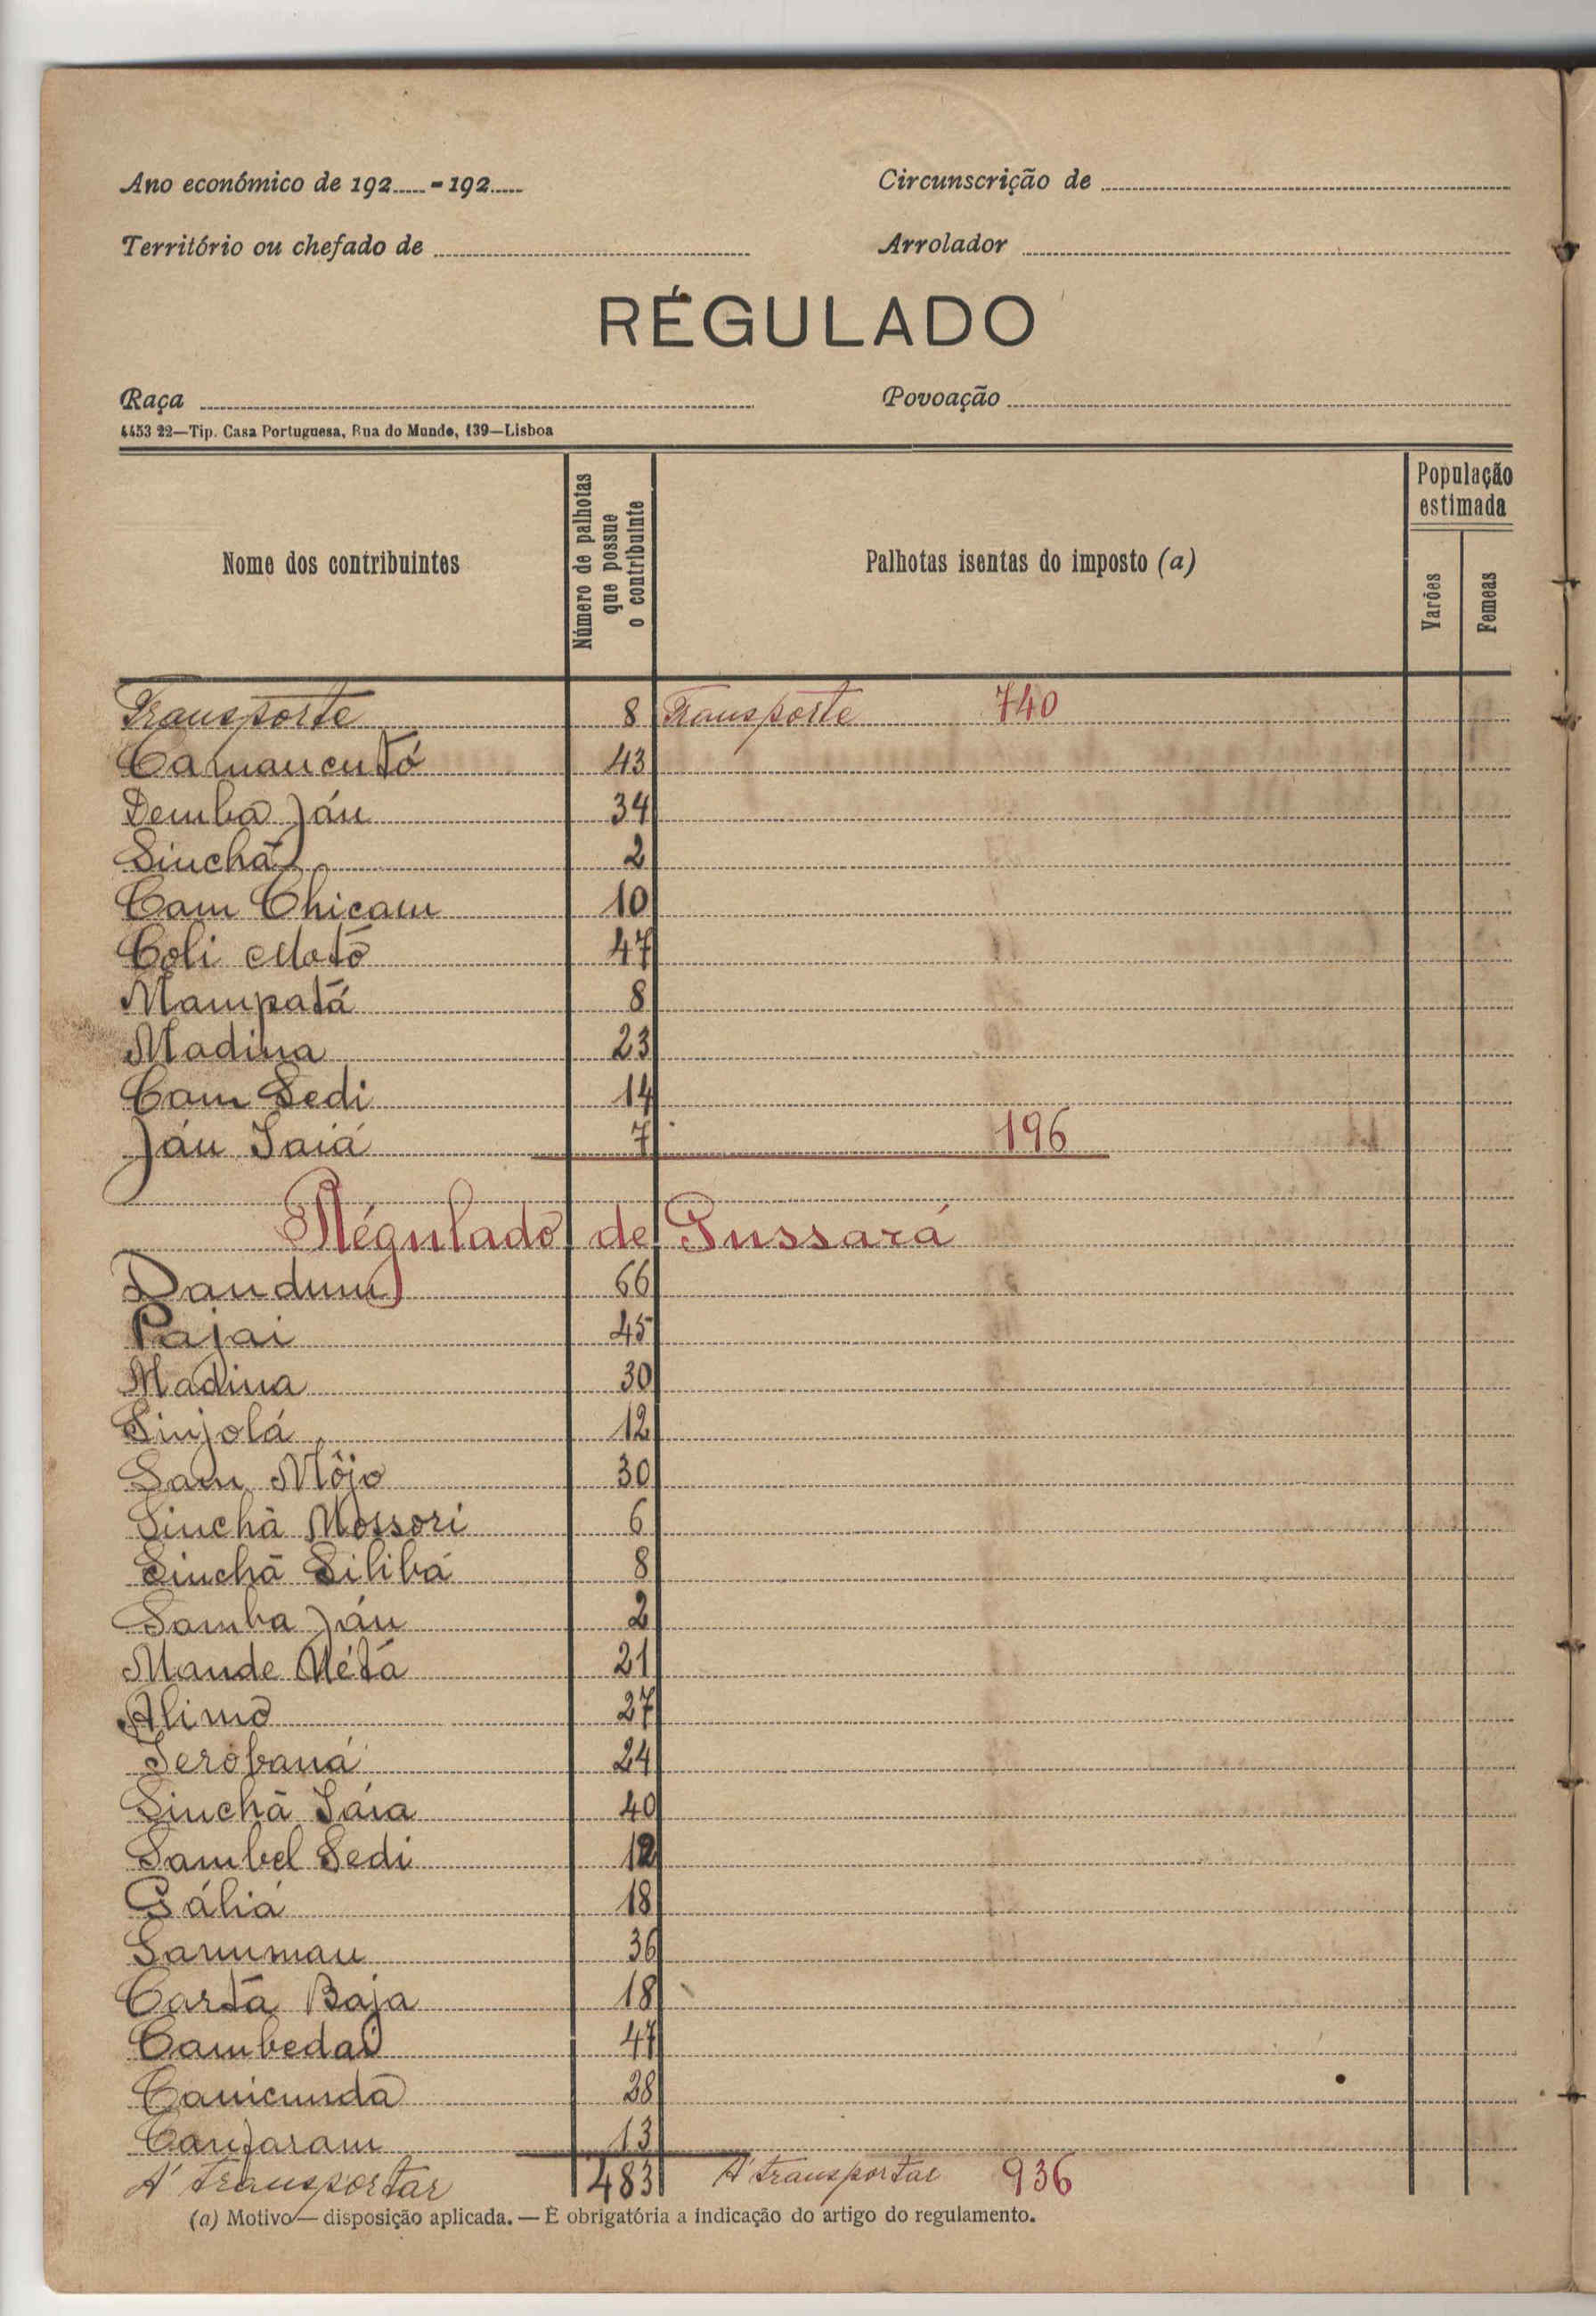 Ano económico de 192..... - 192.....
Circunscrição de
Território ou chefado de
Arrolador
RÉGULADO
Raça
Povoação
4453 22—Tip. Casa Portuguesa, Rua do Mundo, 139—Lisboa
Nome dos contribuintes
Número de palhotas que possue o contribuinte
Palhotas isentas do imposto (a)
População estimada
Varões
Femeas
Transporte 8 Transporte 740
Camancutó 43
Demba Jáu 34
Sinchã 2
Cam Chicam 10
Coli Matõ 47
Mampatá 8
Madina 23
Cam Sedi 14
Jáu Iaiá 7 196
Régulado de Pussará
Dandum 66
Pajai 45
Madina 30
Sinjolá 12
Sam Môjo 30
Sinchã Mossori 6
Sinchã Silibá 8
Samba Jáu 2
Mande Métá 21
Alimõ 27
Serobaná 24
Sinchã Iáia 40
Sambel Sedi 12
Gáliá 18
Sanuman 36
Cartã Baja 18
Cambedai 47
Canicundã 28
Canjaram 13
A' transportar 483 A' transportar 936
(a) Motivo — disposição aplicada. — É obrigatória a indicação do artigo do regulamento.